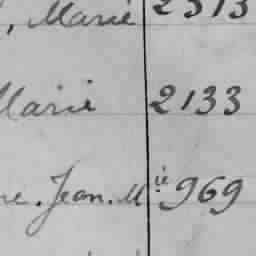 , Marie 2513
Marie 2133
ne. Jean. Mie 969